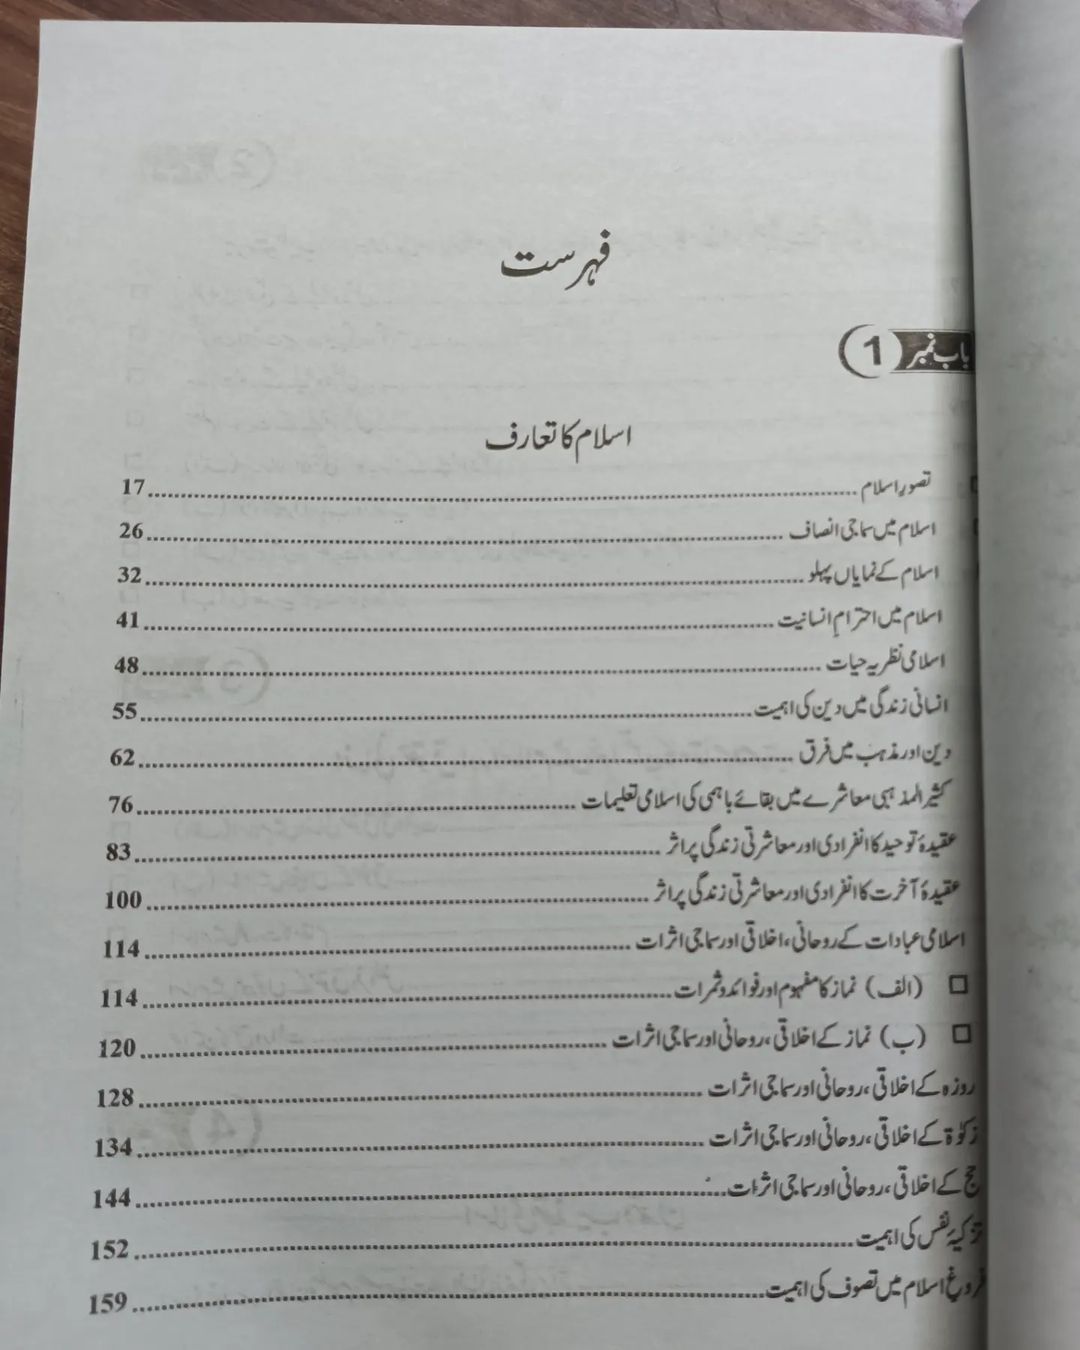 فہرست
باب نمبر 1
اسلام کا تعارف
تصورِ اسلام 17
اسلام میں سماجی انصاف 26
اسلام کے نمایاں پہلو 32
اسلام میں احترامِ انسانیت 41
اسلامی نظریہ حیات 48
انسانی زندگی میں دین کی اہمیت 55
دین اور مذہب میں فرق 62
کثیر المذہبی معاشرے میں بقائے باہمی کی اسلامی تعلیمات 76
عقیدۂ توحید کا انفرادی اور معاشرتی زندگی پر اثر 83
عقیدۂ آخرت کا انفرادی اور معاشرتی زندگی پر اثر 100
اسلامی عبادات کے روحانی، اخلاقی اور سماجی اثرات 114
(الف) نماز کا مفہوم اور فوائد و ثمرات 114
(ب) نماز کے اخلاقی، روحانی اور سماجی اثرات 120
روزہ کے اخلاقی، روحانی اور سماجی اثرات 128
زکوٰۃ کے اخلاقی، روحانی اور سماجی اثرات 134
حج کے اخلاقی، روحانی اور سماجی اثرات 144
تزکیۂ نفس کی اہمیت 152
فروغِ اسلام میں تصوف کی اہمیت 159